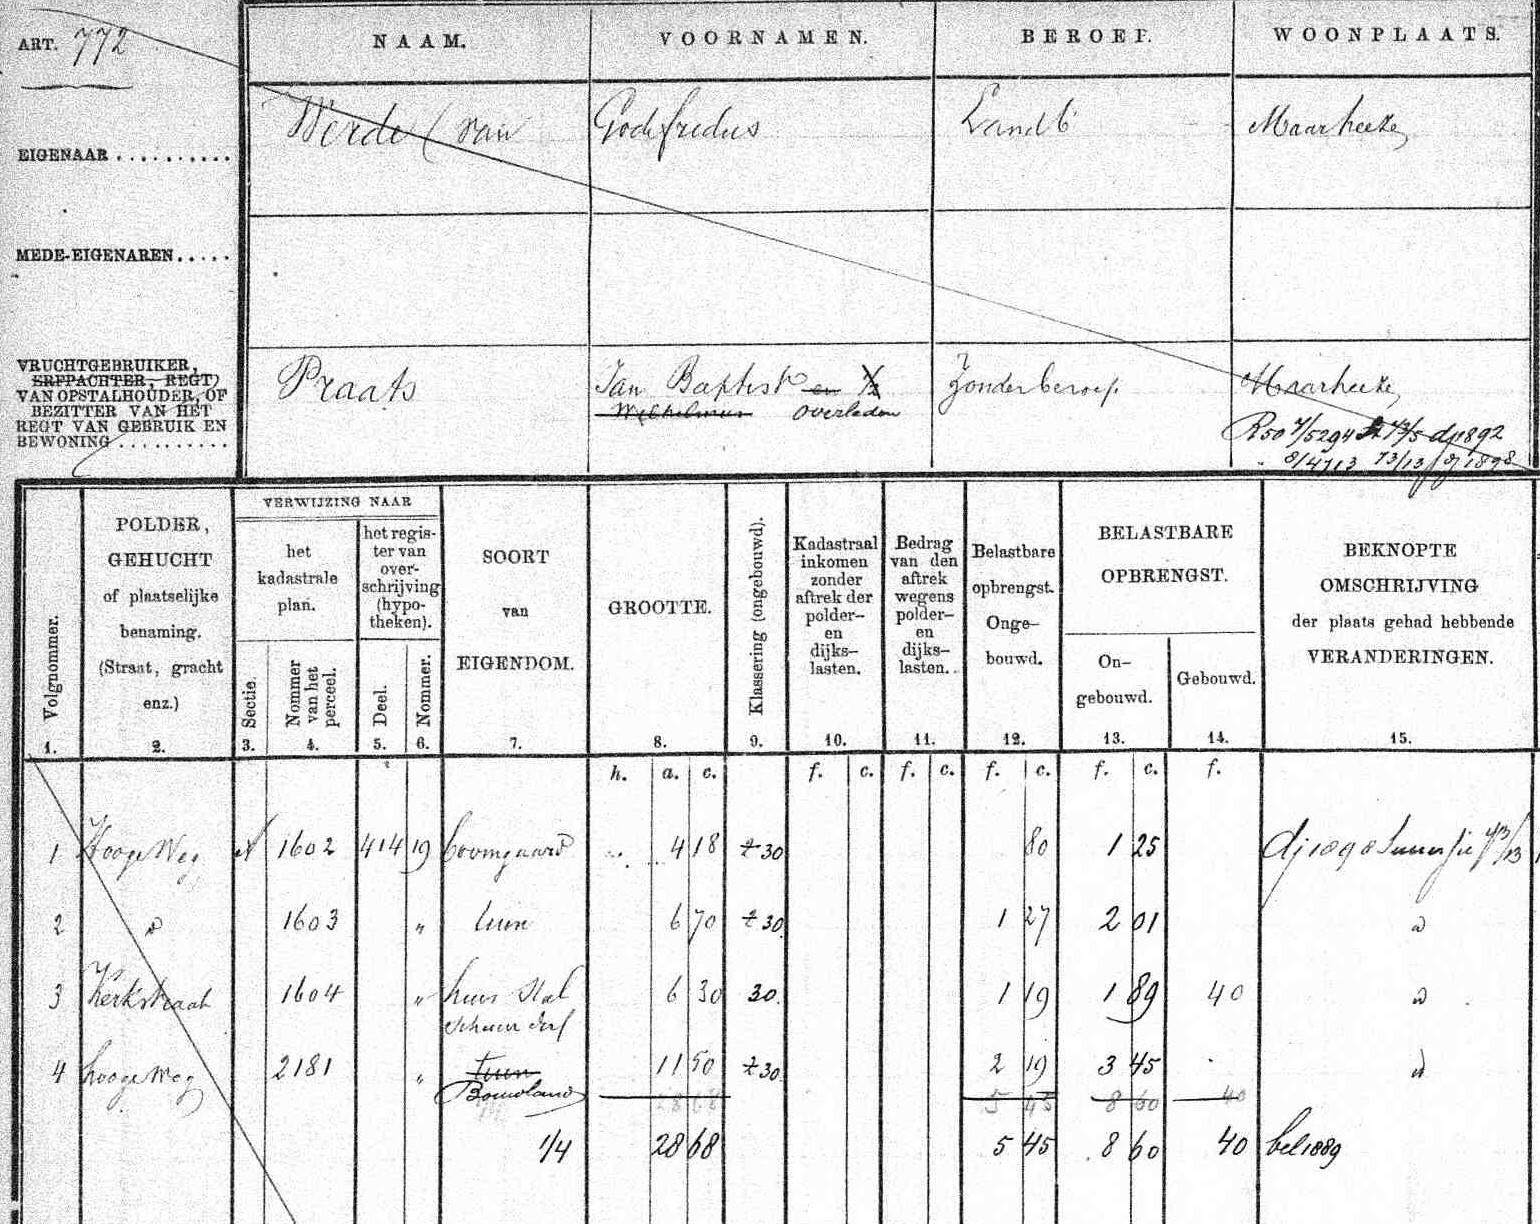 ART. 772
NAAM. VOORNAMEN. BEROEF. WOONPLAATS.
EIGENAAR .......... Werde (van Godefredus Landb Maarheeze
MEDE-EIGENAREN.....
VRUCHTGEBRUIKER,
ERFPACHTER, REGT
VAN OPSTALHOUDER, OF
BEZITTER VAN HET
REGT VAN GEBRUIK EN
BEWONING ..........
Praats Jan Baptist en 1/2 Zonder beroep. Maarheeze
Wilhelmus overleden
R50 7/5294 73/5 dj 1892
" 8/4713 73/13 dj 1898
Volgnommer.
1.
POLDER,
GEHUCHT
of plaatselijke
benaming.
(Straat, gracht
enz.)
2.
VERWIJZING NAAR
het
kadastrale
plan.
Sectie.
3.
Nommer
van het
perceel.
4.
het regis-
ter van
over-
schrijving
(hypo-
theken).
Deel.
5.
Nommer.
6.
SOORT
van
EIGENDOM.
7.
GROOTTE.
8.
Klassering (ongebouwd).
9.
Kadastraal
inkomen
zonder
aftrek der
polder-
en
dijks-
lasten.
10.
Bedrag
van den
aftrek
wegens
polder-
en
dijks-
lasten..
11.
Belastbare
opbrengst.
Onge-
bouwd.
12.
BELASTBARE
OPBRENGST.
On-
gebouwd.
13.
Gebouwd.
14.
BEKNOPTE
OMSCHRIJVING
der plaats gehad hebbende
VERANDERINGEN.
15.
h. a. c. f. c. f. c. f. c. f. c. f.
1 Hooge Weg A 1602 414 19 boomgaard 4 18 30 80 1 25 dj 1898 73/13
2 " 1603 " tuin 6 70 30 1 27 2 01 "
3 Kerkstraat 1604 " huis stal 6 30 30 1 19 1 89 40 "
schuur erf
4 hooge Weg 2181 " tuin 11 50 30 2 19 3 45 "
Bouwland 28 68 5 45 8 60 40
1/4 28 68 5 45 8 60 40 bel 1889